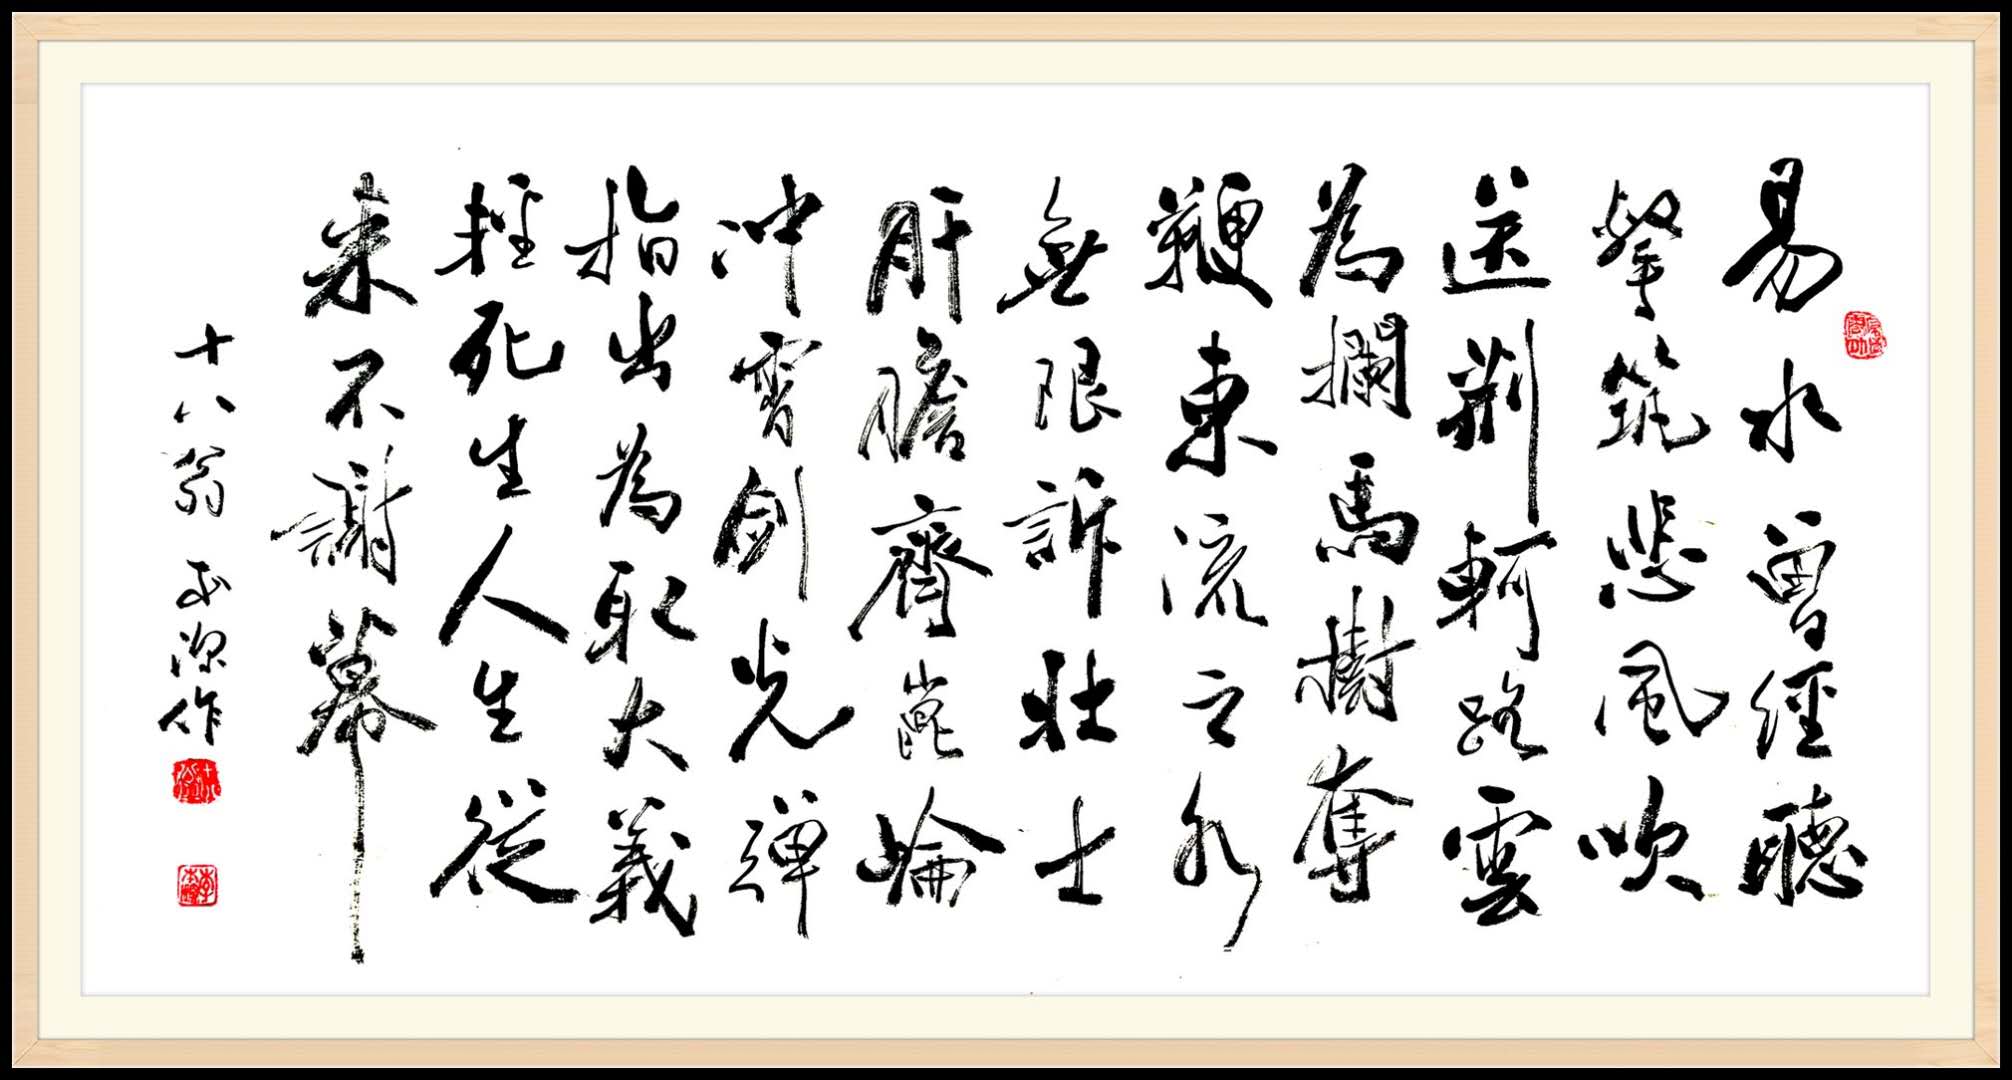 易水曾經聽
擊筑悲風吹
送荆軻路雲
為攔馬樹奪
鞭東流之水
無限訴壯士
肝膽齊崑崘
冲霄劍光彈
指出為取大義
輕死生人生從
來不謝幕
十八翁 作